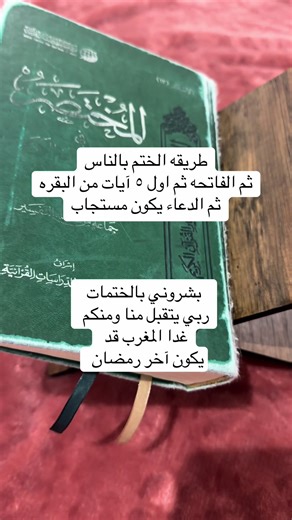 المختصر
طريقه الختم بالناس
ثم الفاتحه ثم اول ٥ آيات من البقره
ثم الدعاء يكون مستجاب
بشروني بالختمات
ربي يتقبل منا ومنكم
غدا المغرب قد
يكون آخر رمضان
إشراف